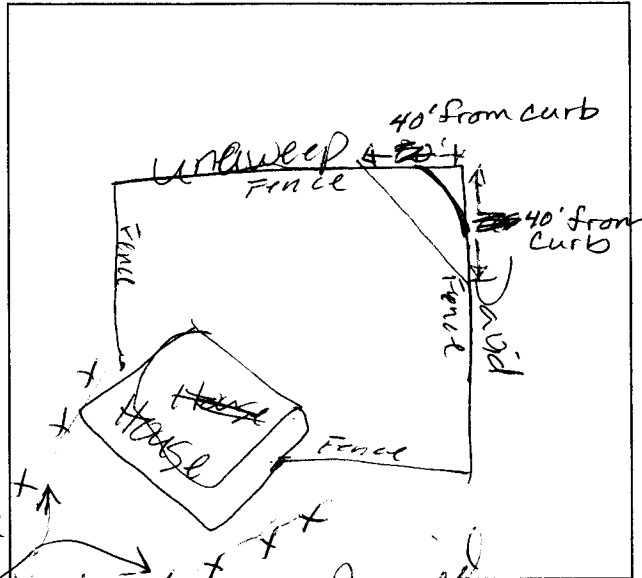 40' from curb
Unaweep
Fence
40' from
curb
Fence
Fence
David
House
House
Fence